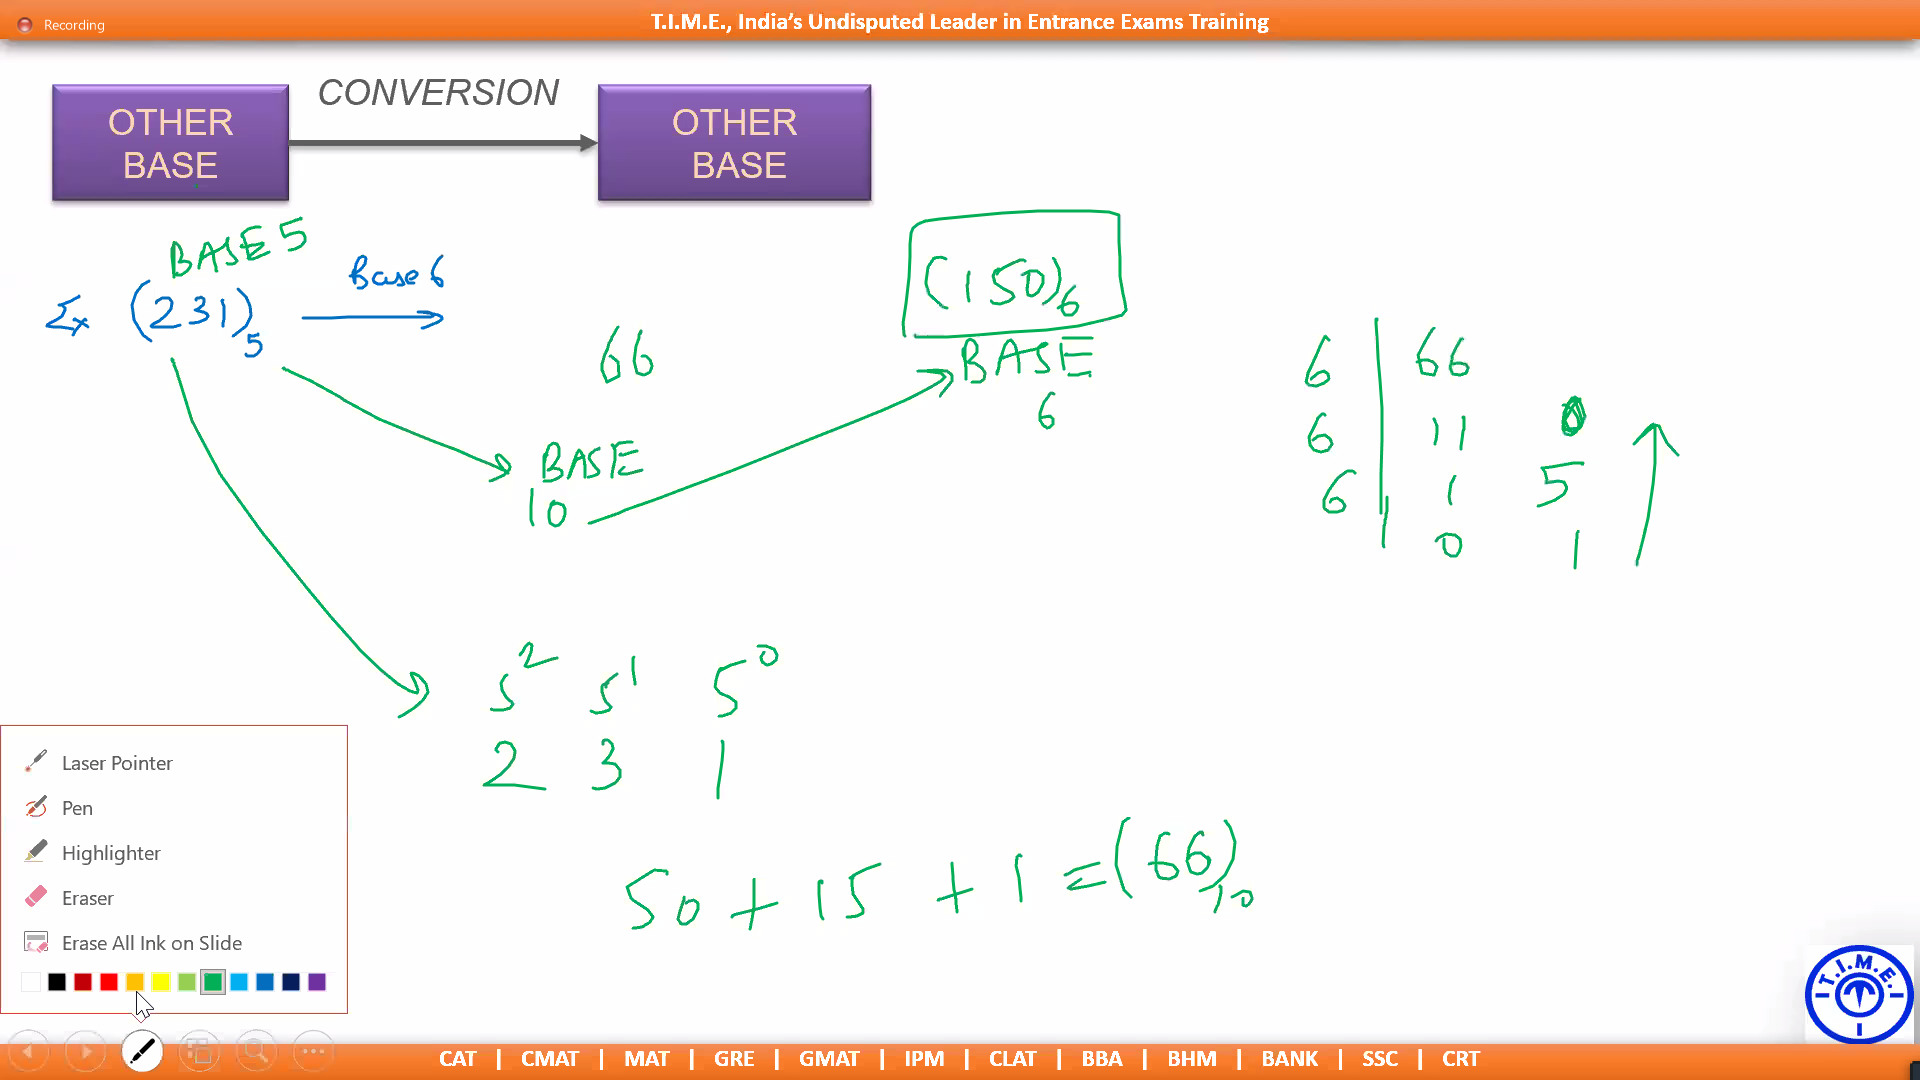 Recording
T.I.M.E., India's Undisputed Leader in Entrance Exams Training
CONVERSION
OTHER
BASE
OTHER
BASE
BASE 5
Ex (231)5
Base 6
66
(150)6
BASE
6
BASE
10
6 66
6 11 0
6 1 5
0 1
5² 5¹ 5⁰
2 3 1
50 + 15 + 1 = (66)10
Laser Pointer
Pen
Highlighter
Eraser
Erase All Ink on Slide
T.I.M.E.
CAT | CMAT | MAT | GRE | GMAT | IPM | CLAT | BBA | BHM | BANK | SSC | CRT